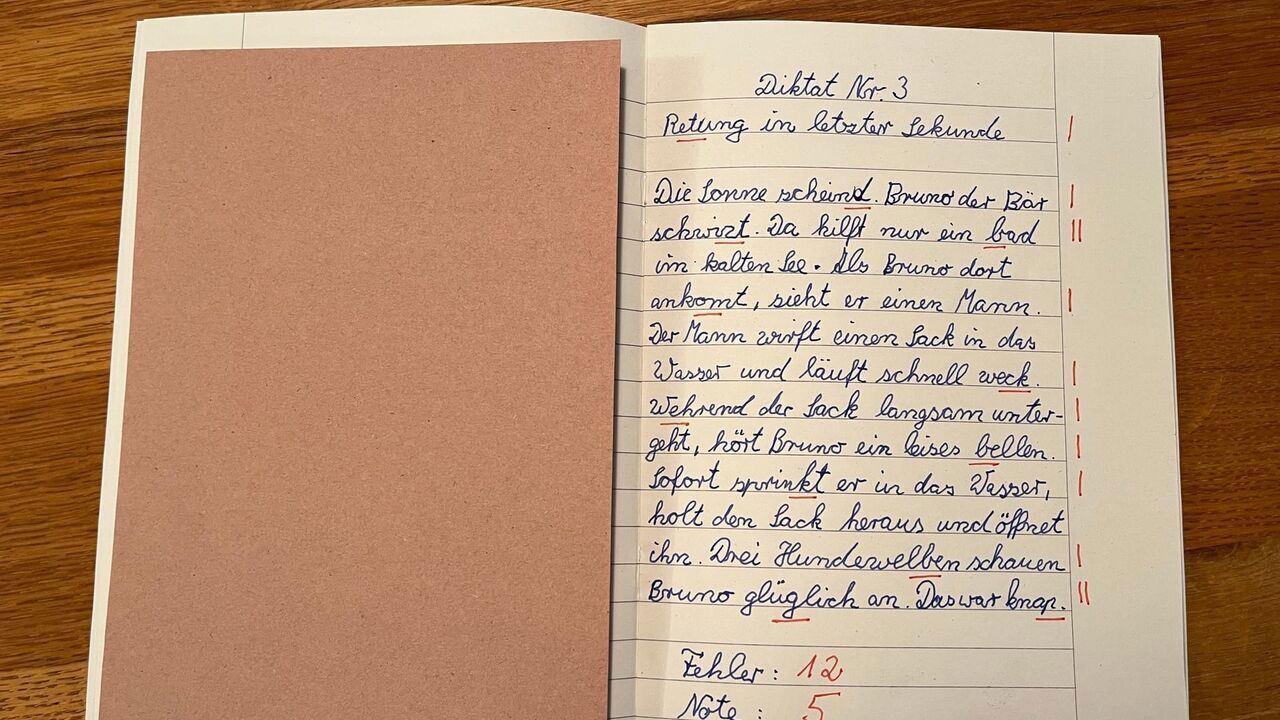 Diktat Nr. 3
Retung in letzter Sekunde
Die Sonne scheind. Bruno der Bär
schwizt. Da hilft nur ein bad
im kalten See. Als Bruno dort
ankomt, sieht er einen Mann.
Der Mann wirft einen Sack in das
Wasser und läuft schnell weck.
Wehrend der Sack langsam unter-
geht, hört Bruno ein leises bellen.
Sofort sprinkt er in das Wasser,
holt den Sack heraus und öffnet
ihn. Drei Hundewelben schauen
Bruno glüglich an. Das war knap.
Fehler: 12
Note : 5